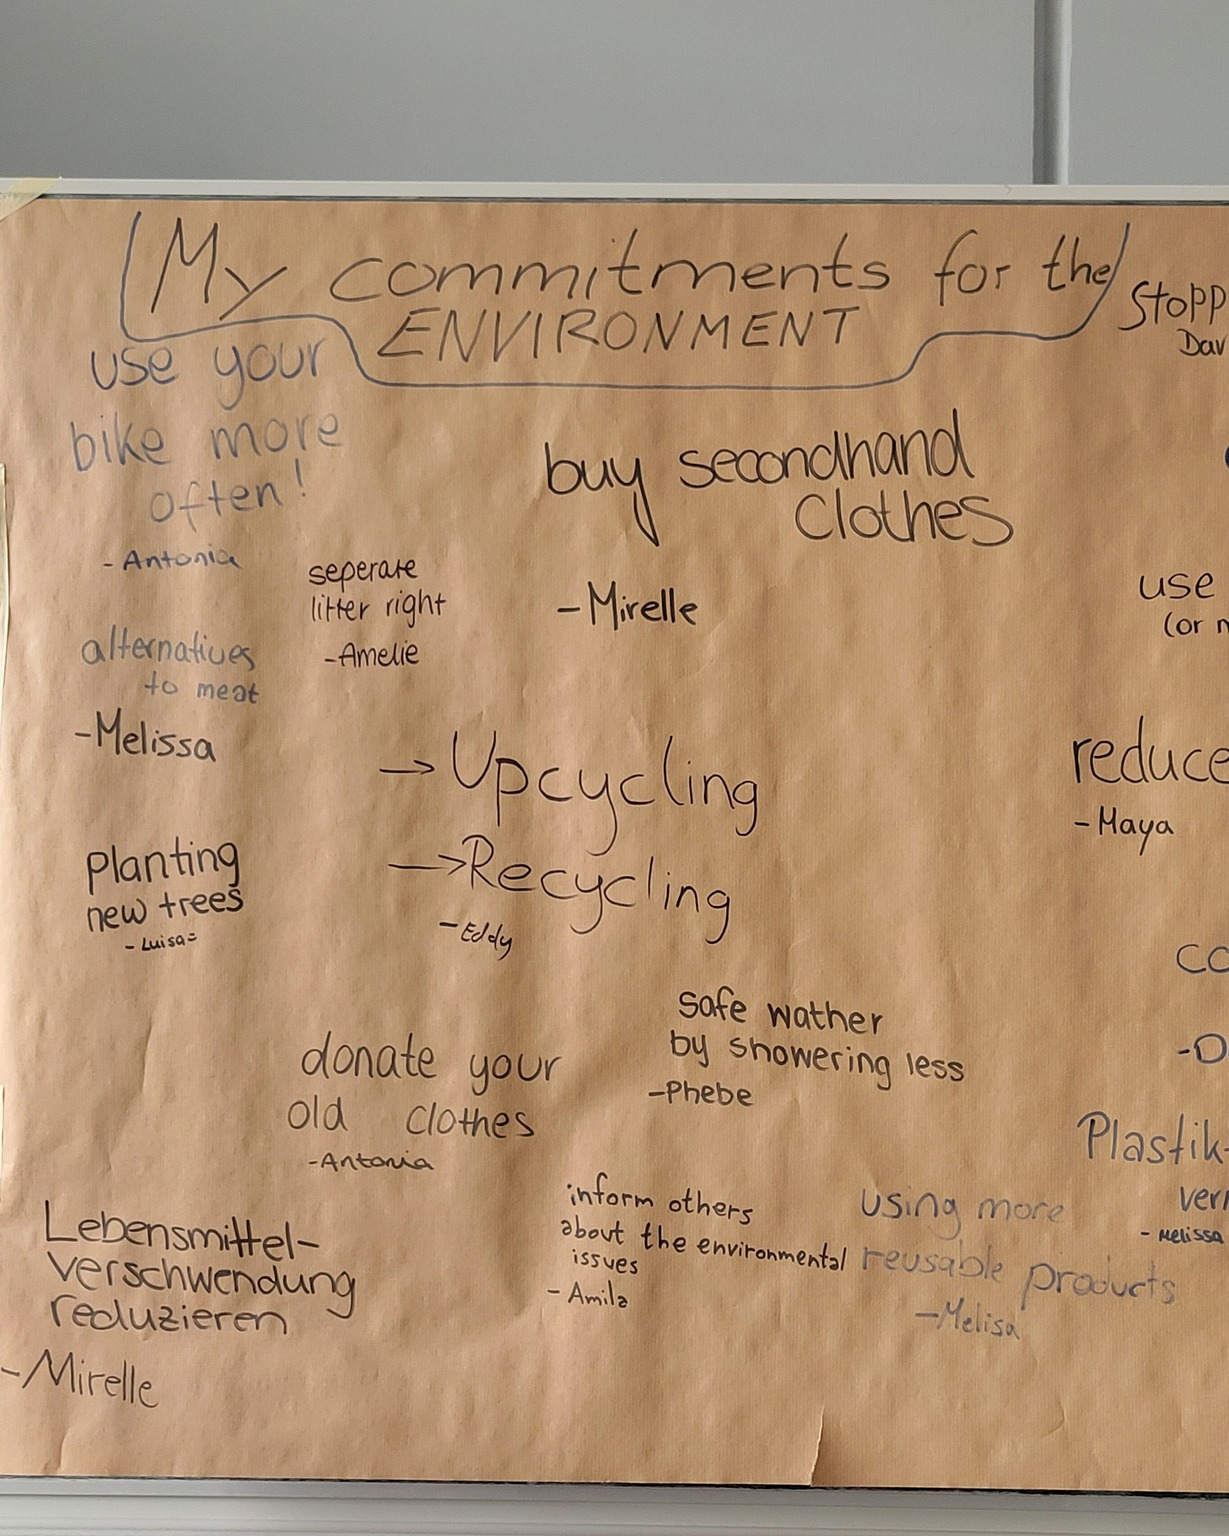 My commitments for the
ENVIRONMENT
Stopp
Dav
use your
bike more
often!
- Antonia
buy secondhand
Clothes
- Mirelle
seperate
litter right
- Amelie
use
(or
alternatives
to meat
- Melissa
→ Upcycling
→ Recycling
- Eddy
reduce
- Maya
planting
new trees
- Luisa=
co
- D
safe wather
by showering less
- Phebe
donate your
old clothes
- Antonia
Plastik-
ver
- Melissa
inform others
about the environmental
issues
- Amila
using more
reusable products
- Melisa
Lebensmittel-
verschwendung
reduzieren
- Mirelle